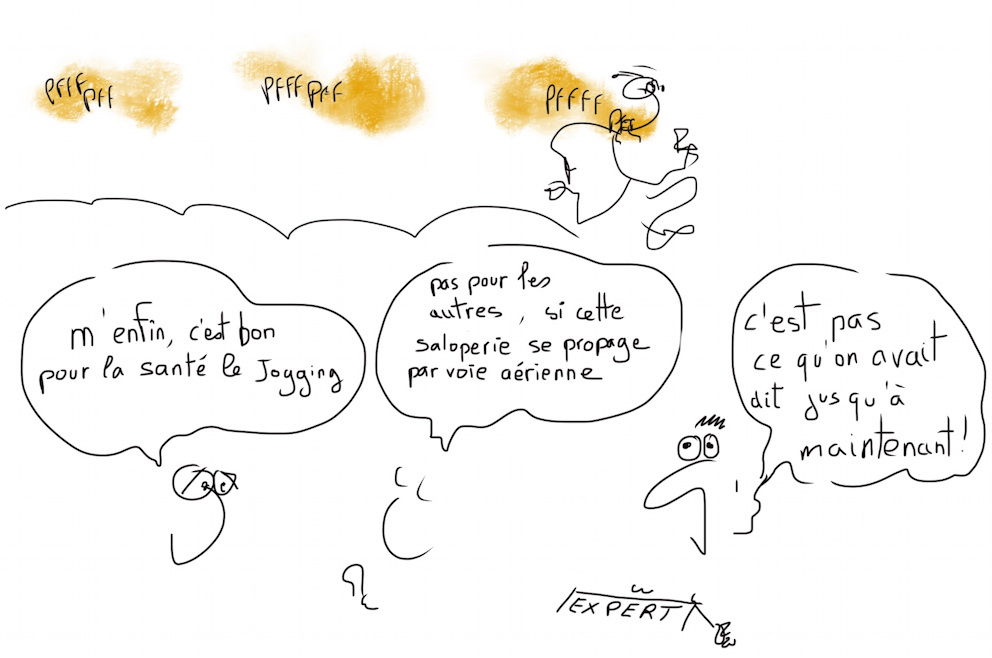 PFFF
PFF
PFFF PFF
PFFFF
PFF
m'enfin, c'est bon
pour la santé le Jogging
pas pour les
autres, si cette
saloperie se propage
par voie aérienne
c'est pas
ce qu'on avait
dit jusqu'à
maintenant!
EXPERT